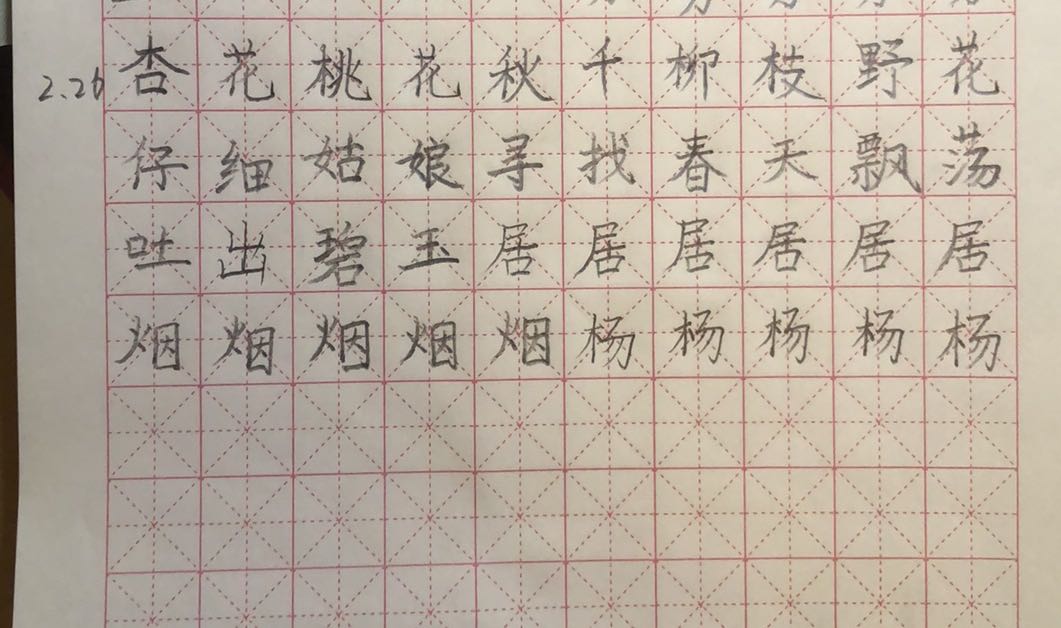 2.26 杏花桃花秋千柳枝野花
仔细姑娘寻找春天飘荡
吐出碧玉居居居居居居
烟烟烟烟烟杨杨杨杨杨